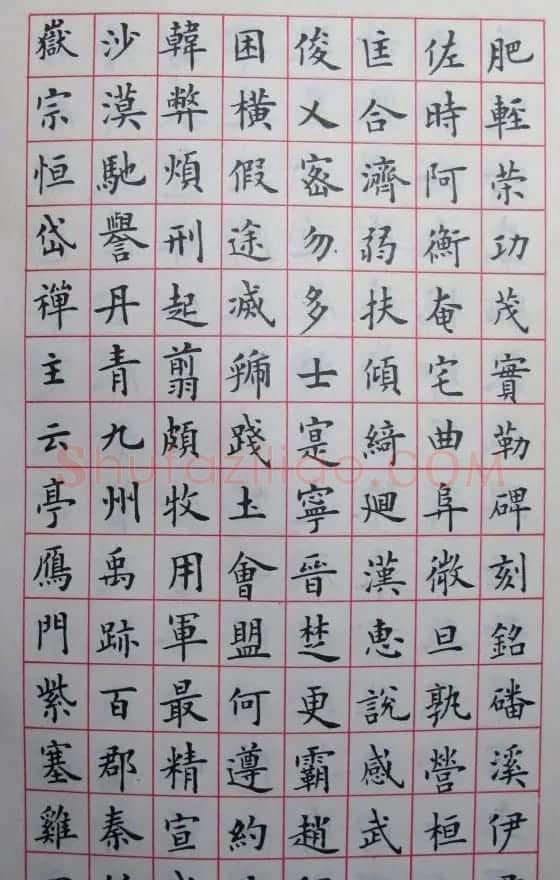 肥輕荣功茂實勒碑刻銘磻溪伊
佐時阿衡奄宅曲阜微旦孰營桓
匡合濟弱扶傾綺廻漢惠説感武
俊乂密勿多士寔寧晉楚更霸趙
困横假途滅虢踐土會盟何遵約
韓弊煩刑起翦頗牧用軍最精宣
沙漠馳譽丹青九州禹跡百郡秦
嶽宗恒岱禪主云亭鴈門紫塞雞
Shufaziliao.COM